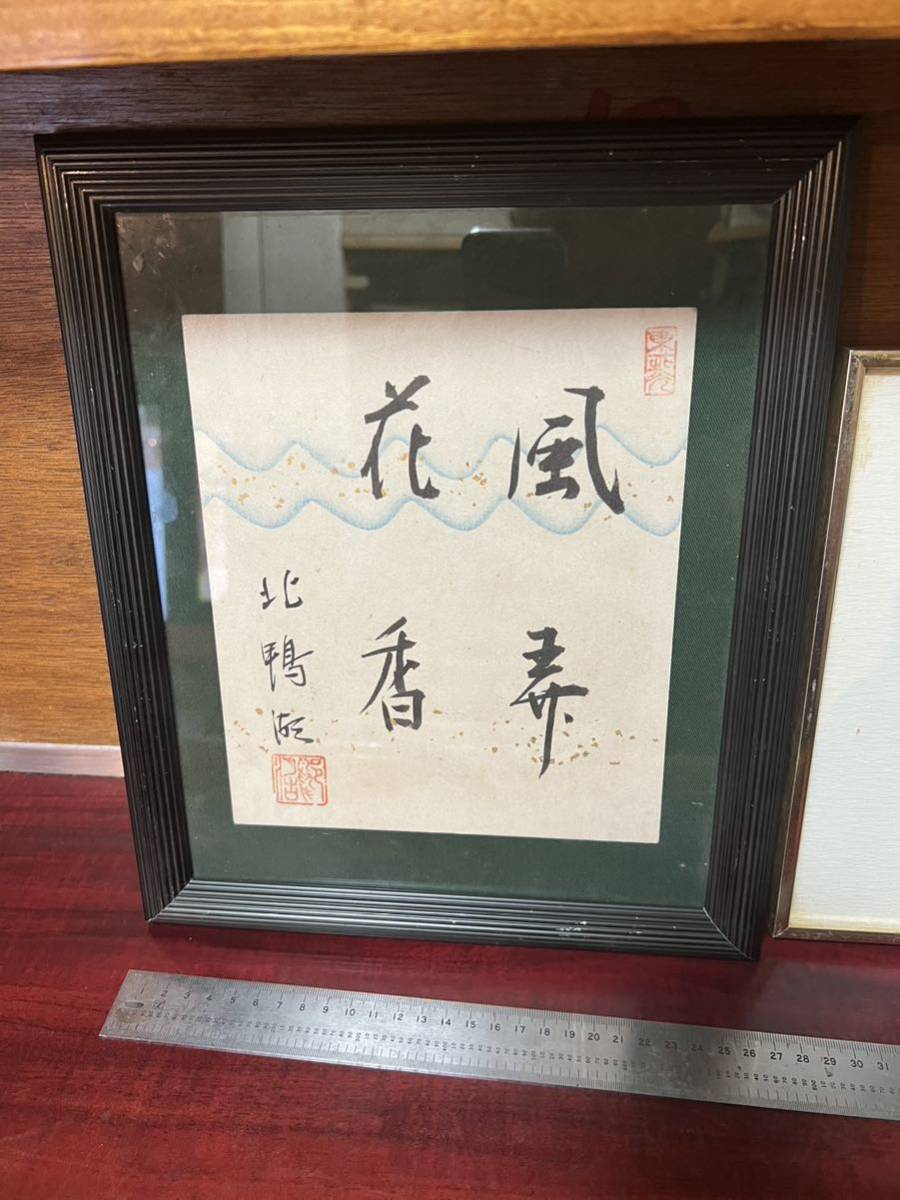 風弄
花香
北鴨湖
1 2 3 4 5 6 7 8 9 10 11 12 13 14 15 16 17 18 19 20 21 22 23 24 25 26 27 28 29 30 31